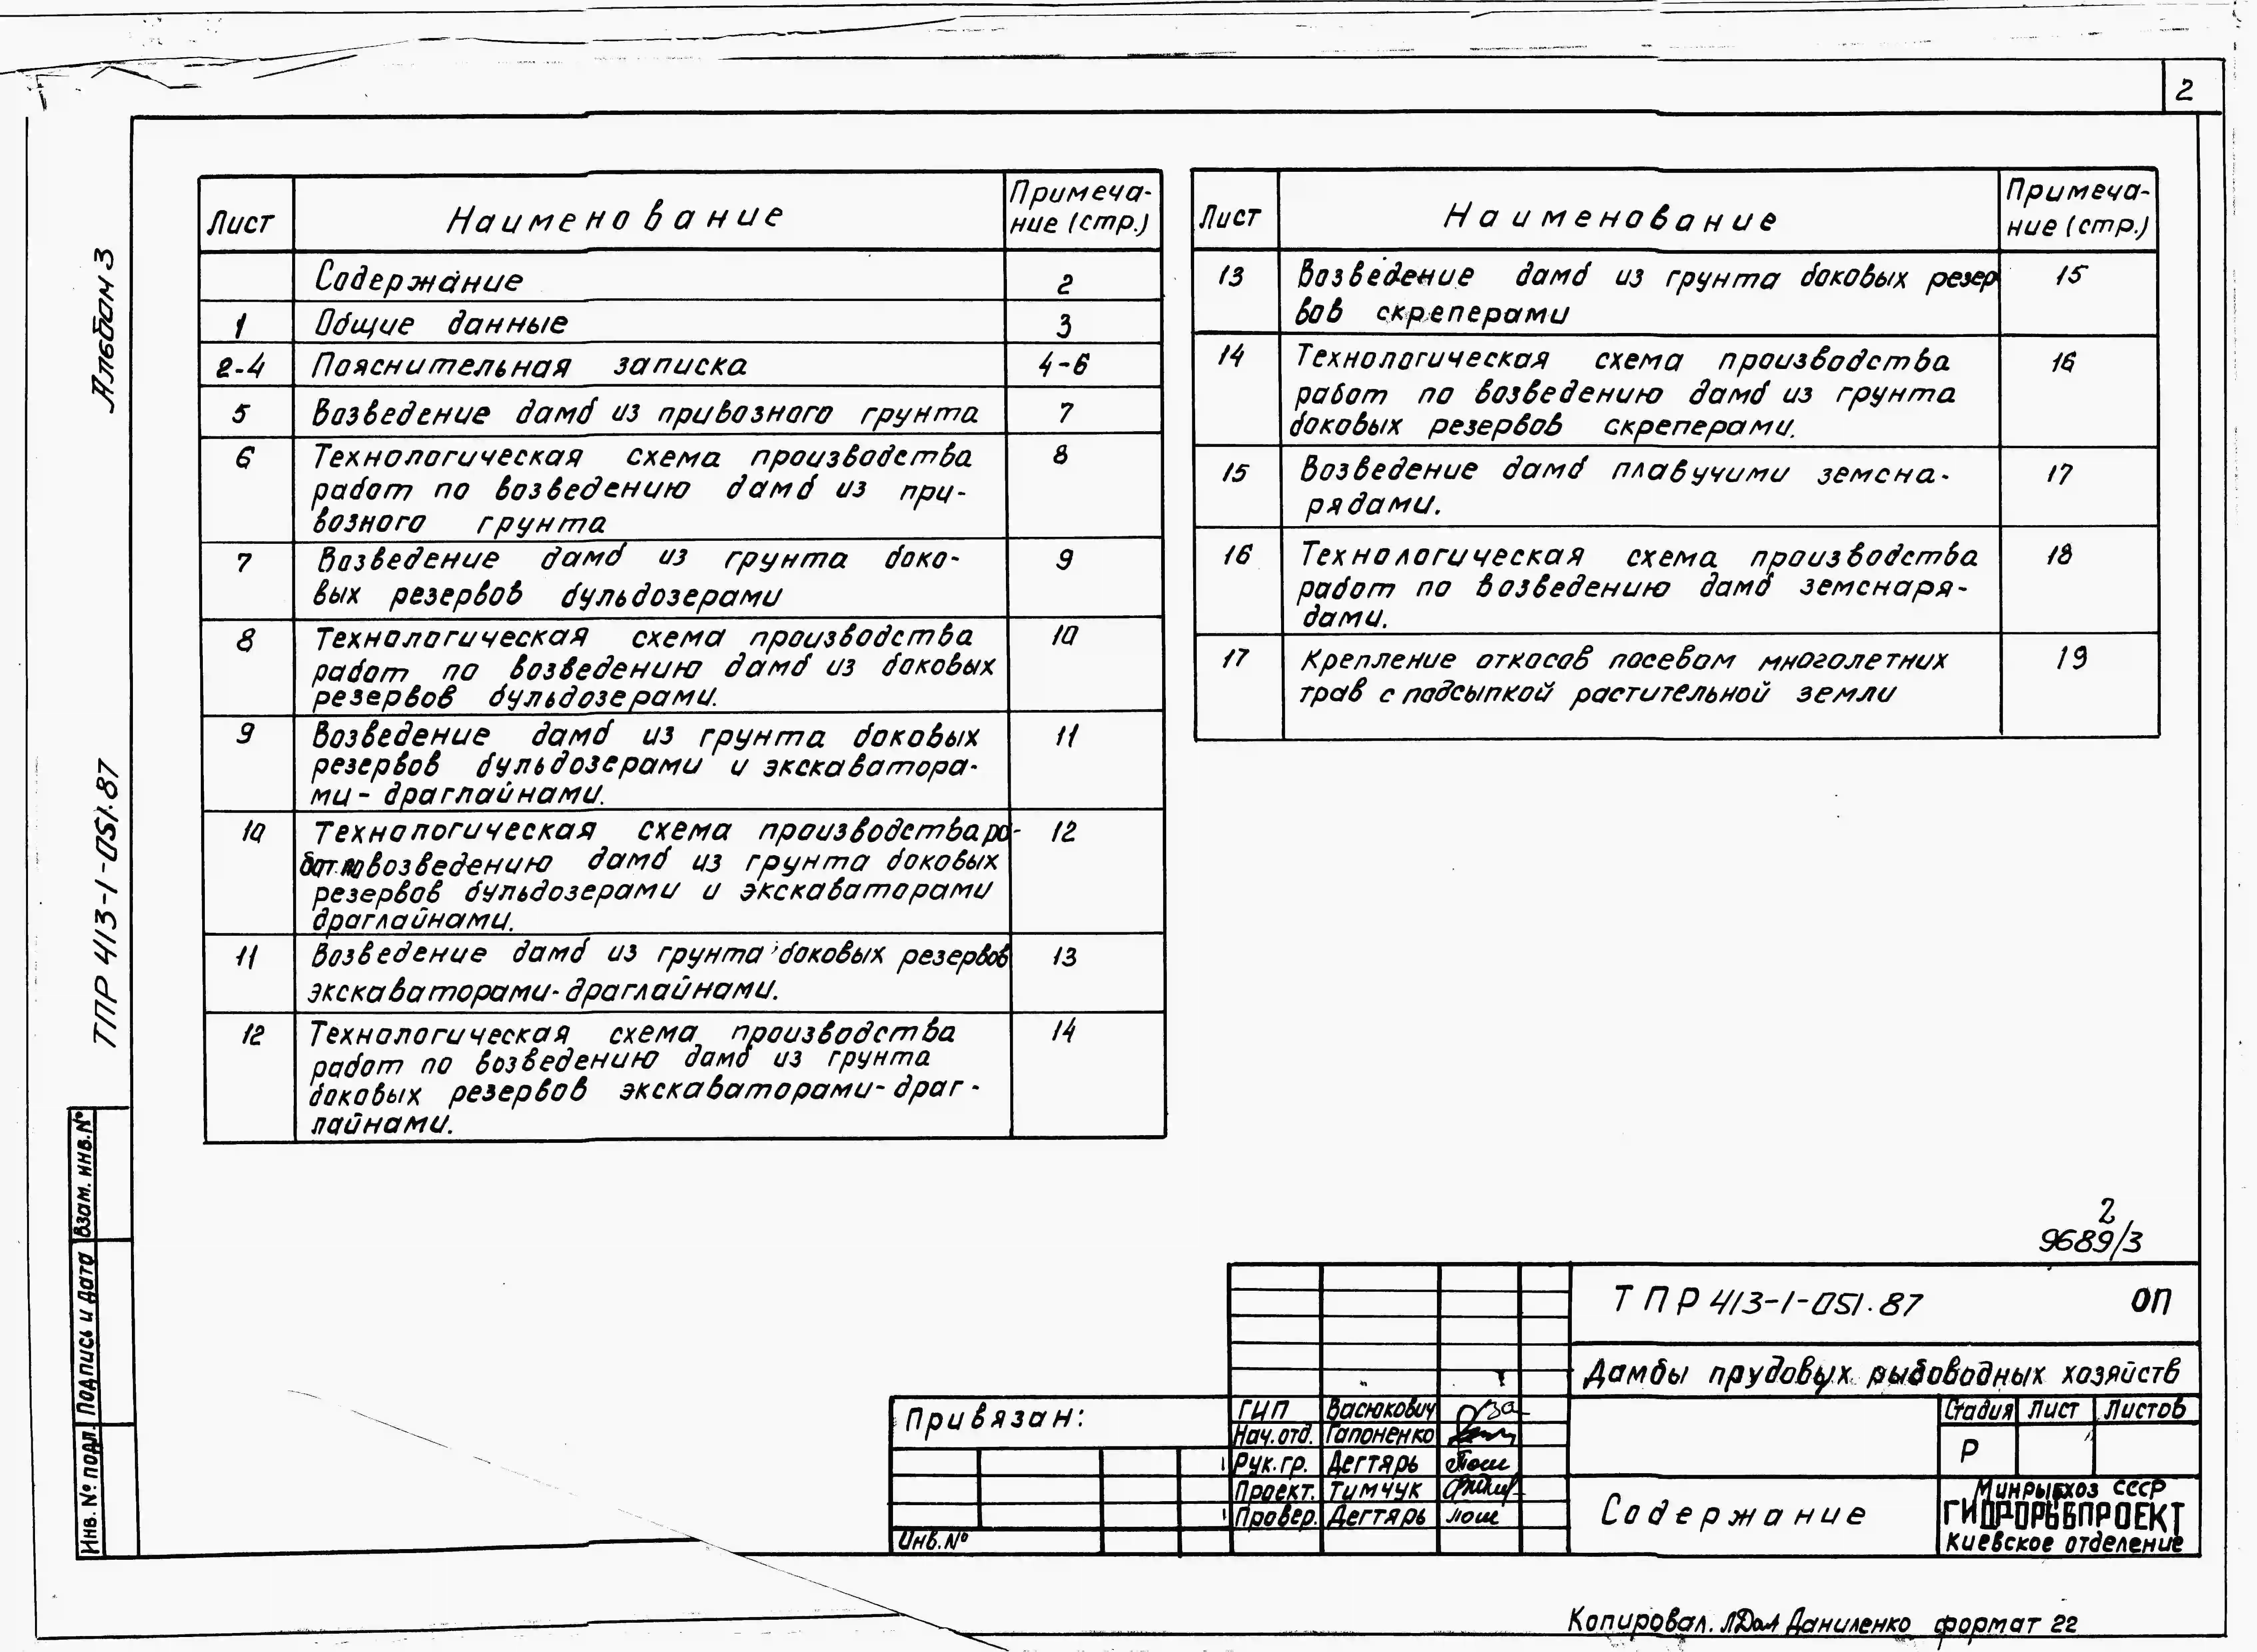 2
Альбом 3
ТПР 413-1-051.87
Лист
Наименование
Примеча-
ние (стр.)
Содержание
2
1
Общие данные
3
2-4
Пояснительная записка
4-6
5
Возведение дамб из привозного грунта
7
6
Технологическая схема производства
8
работ по возведению дамб из при-
возного грунта
7
Возведение дамб из грунта боко-
9
вых резервов бульдозерами
8
Технологическая схема производства
10
работ по возведению дамб из боковых
резервов бульдозерами.
9
Возведение дамб из грунта боковых
11
резервов бульдозерами и экскаватора-
ми - драглайнами.
10
Технологическая схема производства ра-
12
бот по возведению дамб из грунта боковых
резервов бульдозерами и экскаваторами
драглайнами.
11
Возведение дамб из грунта боковых резервов
13
экскаваторами-драглайнами.
12
Технологическая схема производства
14
работ по возведению дамб из грунта
боковых резервов экскаваторами-драг-
лайнами.
Лист
Наименование
Примеча-
ние (стр.)
13
Возведение дамб из грунта боковых резер
15
вов скреперами
14
Технологическая схема производства
16
работ по возведению дамб из грунта
боковых резервов скреперами.
15
Возведение дамб плавучими земсна-
17
рядами.
16
Технологическая схема производства
18
работ по возведению дамб земснаря-
дами.
17
Крепление откосов посевом многолетних
19
трав с подсыпкой растительной земли
Взам. инв. №
Подпись и дата
Инв. № подл.
2
9689/3
ТПР 413-1-051.87 ОП
Дамбы прудовых рыбоводных хозяйств
Привязан:
Инв. №
ГИП Васюкович
Нач. отд. Гапоненко
Рук. гр. Дегтярь
Проект. Тимчук
Провер. Дегтярь
Стадия Лист Листов
Р
Содержание
Минрыбхоз СССР
ГИДРОРЫБПРОЕКТ
Киевское отделение
Копировал. Даниленко формат 22